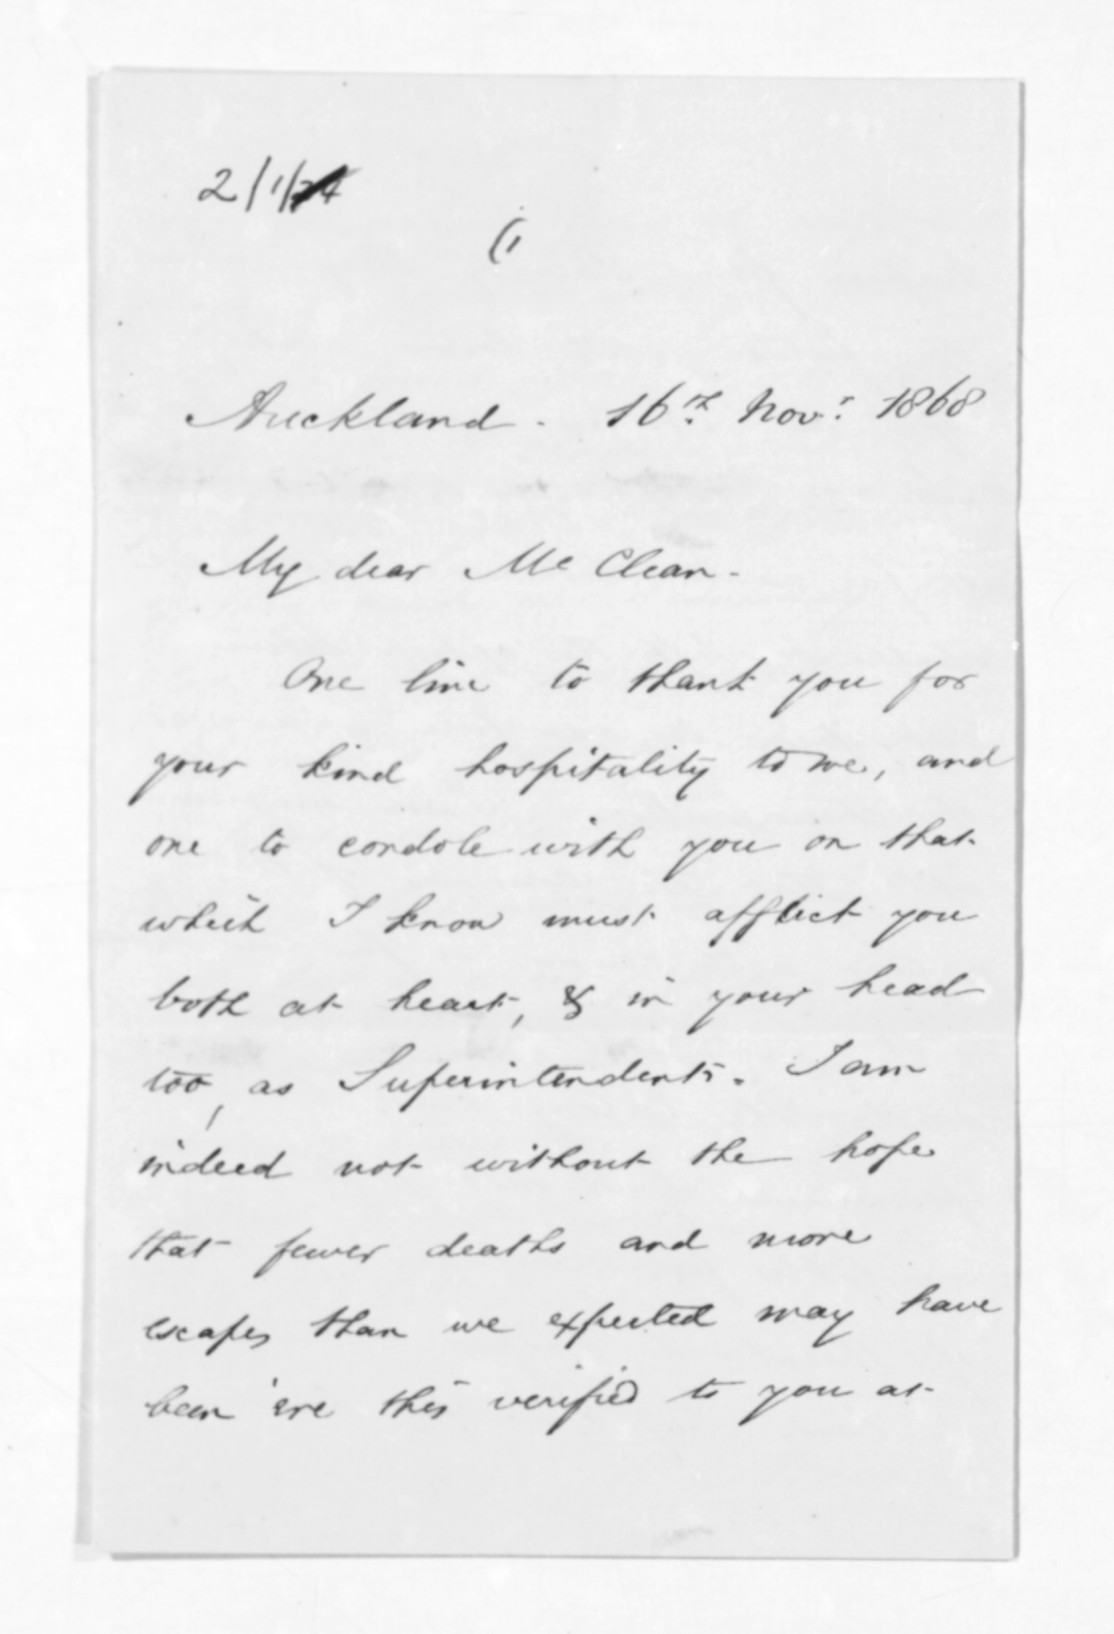 2/1/
(1
Auckland. 16th Novr. 1868
My dear McClean.
One line to thank you for
your kind hospitality to me, and
one to condole with you on that
which I know must afflict you
both at heart, & in your head
too, as Superintendent. I am
indeed not without the hope
that fewer deaths and more
escapes than we expected may have
been 'ere this verified to you at